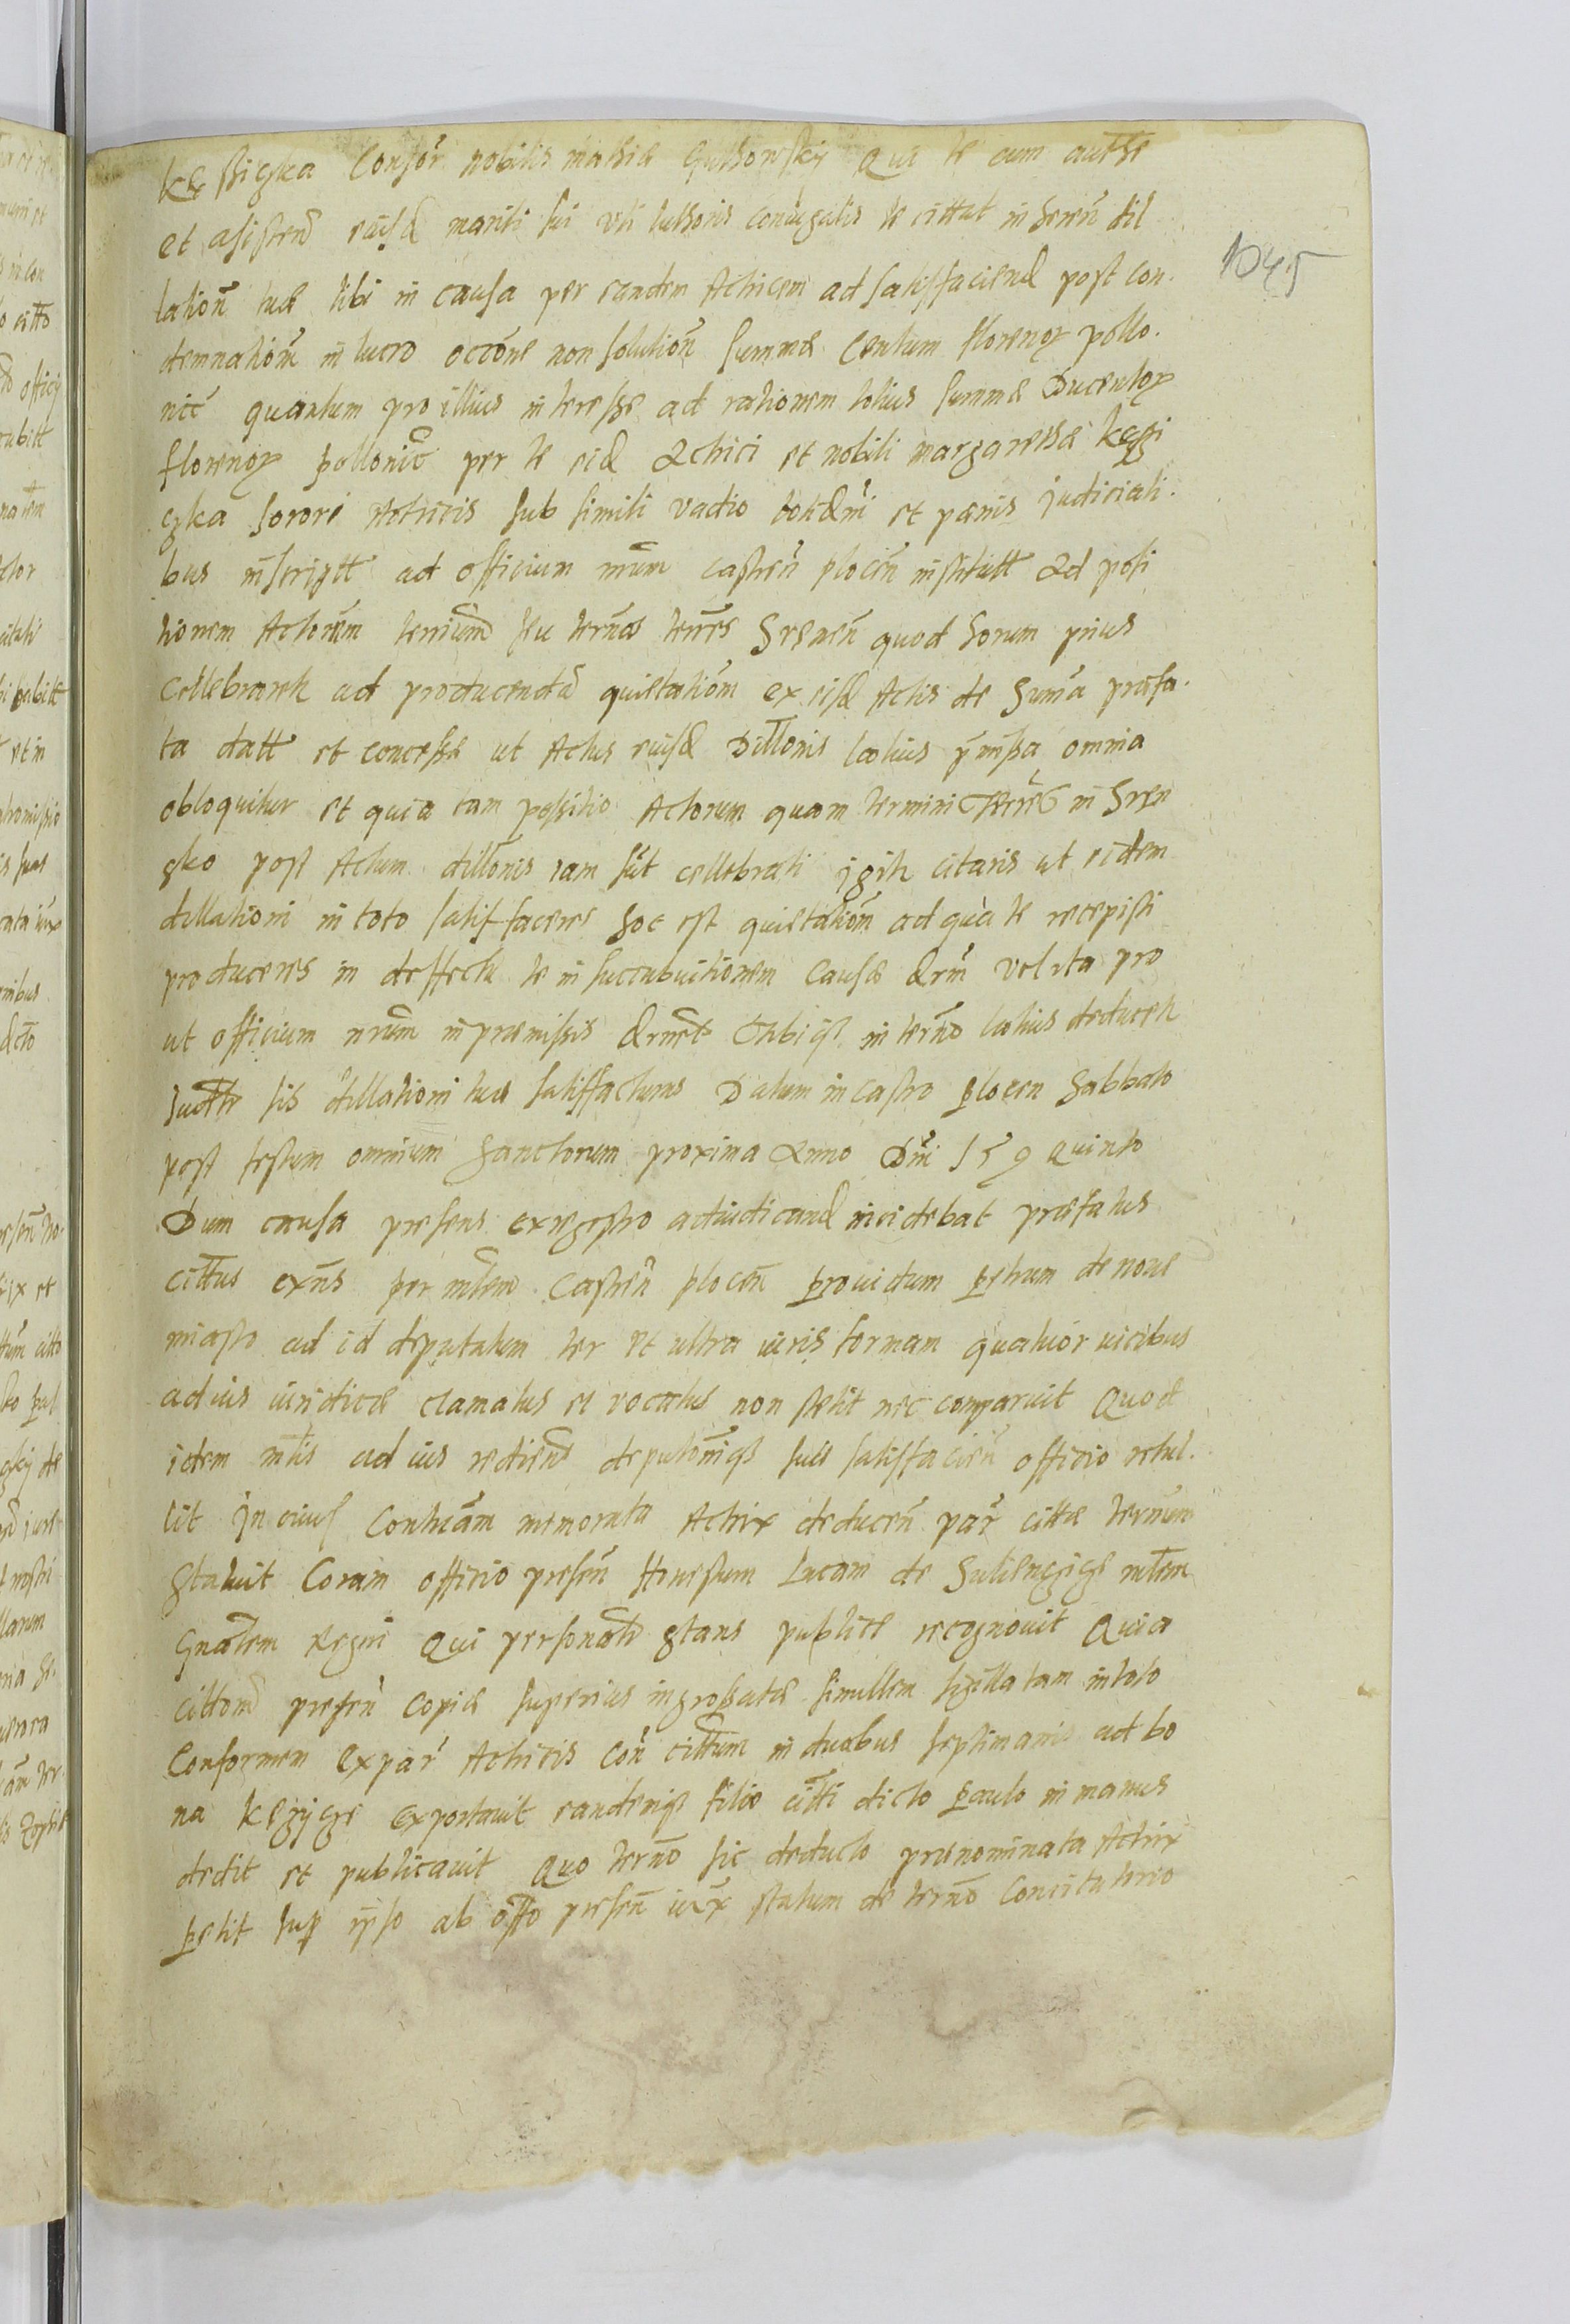 Kęssiczka Consor̄ nobilis mathiæ Guthowskij Qui te cum authē
et assisten̄ eiusd mariti sui vti tuthoris coniugalis te cittat in heren̄ dil
lation̄ tuæ tibi in causa per eandem Actricem ad satisfaciend post con
demnation̄ in lucro occōne non solution̄ summæ Centum floreno℞ pollo
nic̄ quantum pro illius interesse ad rationem totius summæ Ducento℞
floreno℞ pollonic̄ per te eid Actrici et nobili margarethæ Kęssi
czka sorori Actricis sub simili vadio totidm̄ et pænis judiciali
bus inscriptt ad officium nr̄um castren̄ plocen̄ instituttt Ad posi
tionem Actorum termin̄ seu tern̄os terr̄es Srenen̄ quod horum prius
cellebraret ad producenda quietation̄ ex eisd Actis de Sum̄a præfa
ta datt et concessa ut Actus eiusd Dillōnis latius p̄missa omnia
obloquitur et quia tam possitio Actorum quam termini terr̄es in Sren
sko post Actum dillōnis iam sūt cellebrati igitr citaris ut eidem
dillationi in toto satisfaceres hoc est quietation̄ ad quā te recepisti
produceres in deffectu te in succubuitionem Causæ dr̄ni vel ita pro
ut officium nr̄um in præmissis drnet Tibiq in ter̄no latius deducetr
Judtr sis dillationi tuæ satisfacturus Datum in Castro plocen Sabbato
post festum omnium Sanctorum proxima Anno Dn̄i 159 Quinto
Dum causa presens ex regestro adiudicand incidebat præfatus
cittus exn̄s per mltem Castren̄ plocen̄ prouidum petrum de noue
miasto ad id deputatum ter et ultra iuris formam quatuor vicibus
ad ius iuridice clamatus et vocatus non stetit nec comparuit Quod
idem mltis ad ius rediend deputōniq suæ satisfacien̄ officio retul
lit In cuius Contuam̄ memorata Actrix deducen̄ par̄ cittæ termin̄um
Statuit Coram officio presen̄ Honestum Lucam de Sulenczicze mltem
Gnalem Regni Qui personalr stans publice recognouit Quia
cittōn presen̄ copiæ superius ingrossatæ simillem sigillatam in toto
Conformem Ex par̄ Actricis Con̄ cittum in duabus septimanis ad bo
na Kęsijcze Exportauit eandemq filio citti dicto Paulo in manus
dedit et publicauit Quo ter̄no sic deducto prænominata Actrix
petit sup ipso ab offo presen̄ iux̄ statum de ter̄no Concitatorio
1045